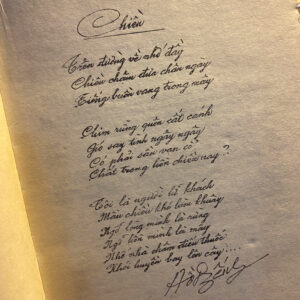 Chiều
Trên đường về nhớ đầy
Chiều chậm đưa chân ngày
Tiếng buồn vang trong mây
Chim rừng quên cất cánh
Gió say tình ngây ngây
Có phải sầu vạn cổ
Chất trong hồn chiều nay?
Tôi là người lữ khách
Màu chiều khó làm khuây
Ngỡ lòng mình là rừng
Ngỡ hồn mình là mây
Nhớ nhà châm điếu thuốc
Khói huyền bay lên cây....
Hồ Dzếnh